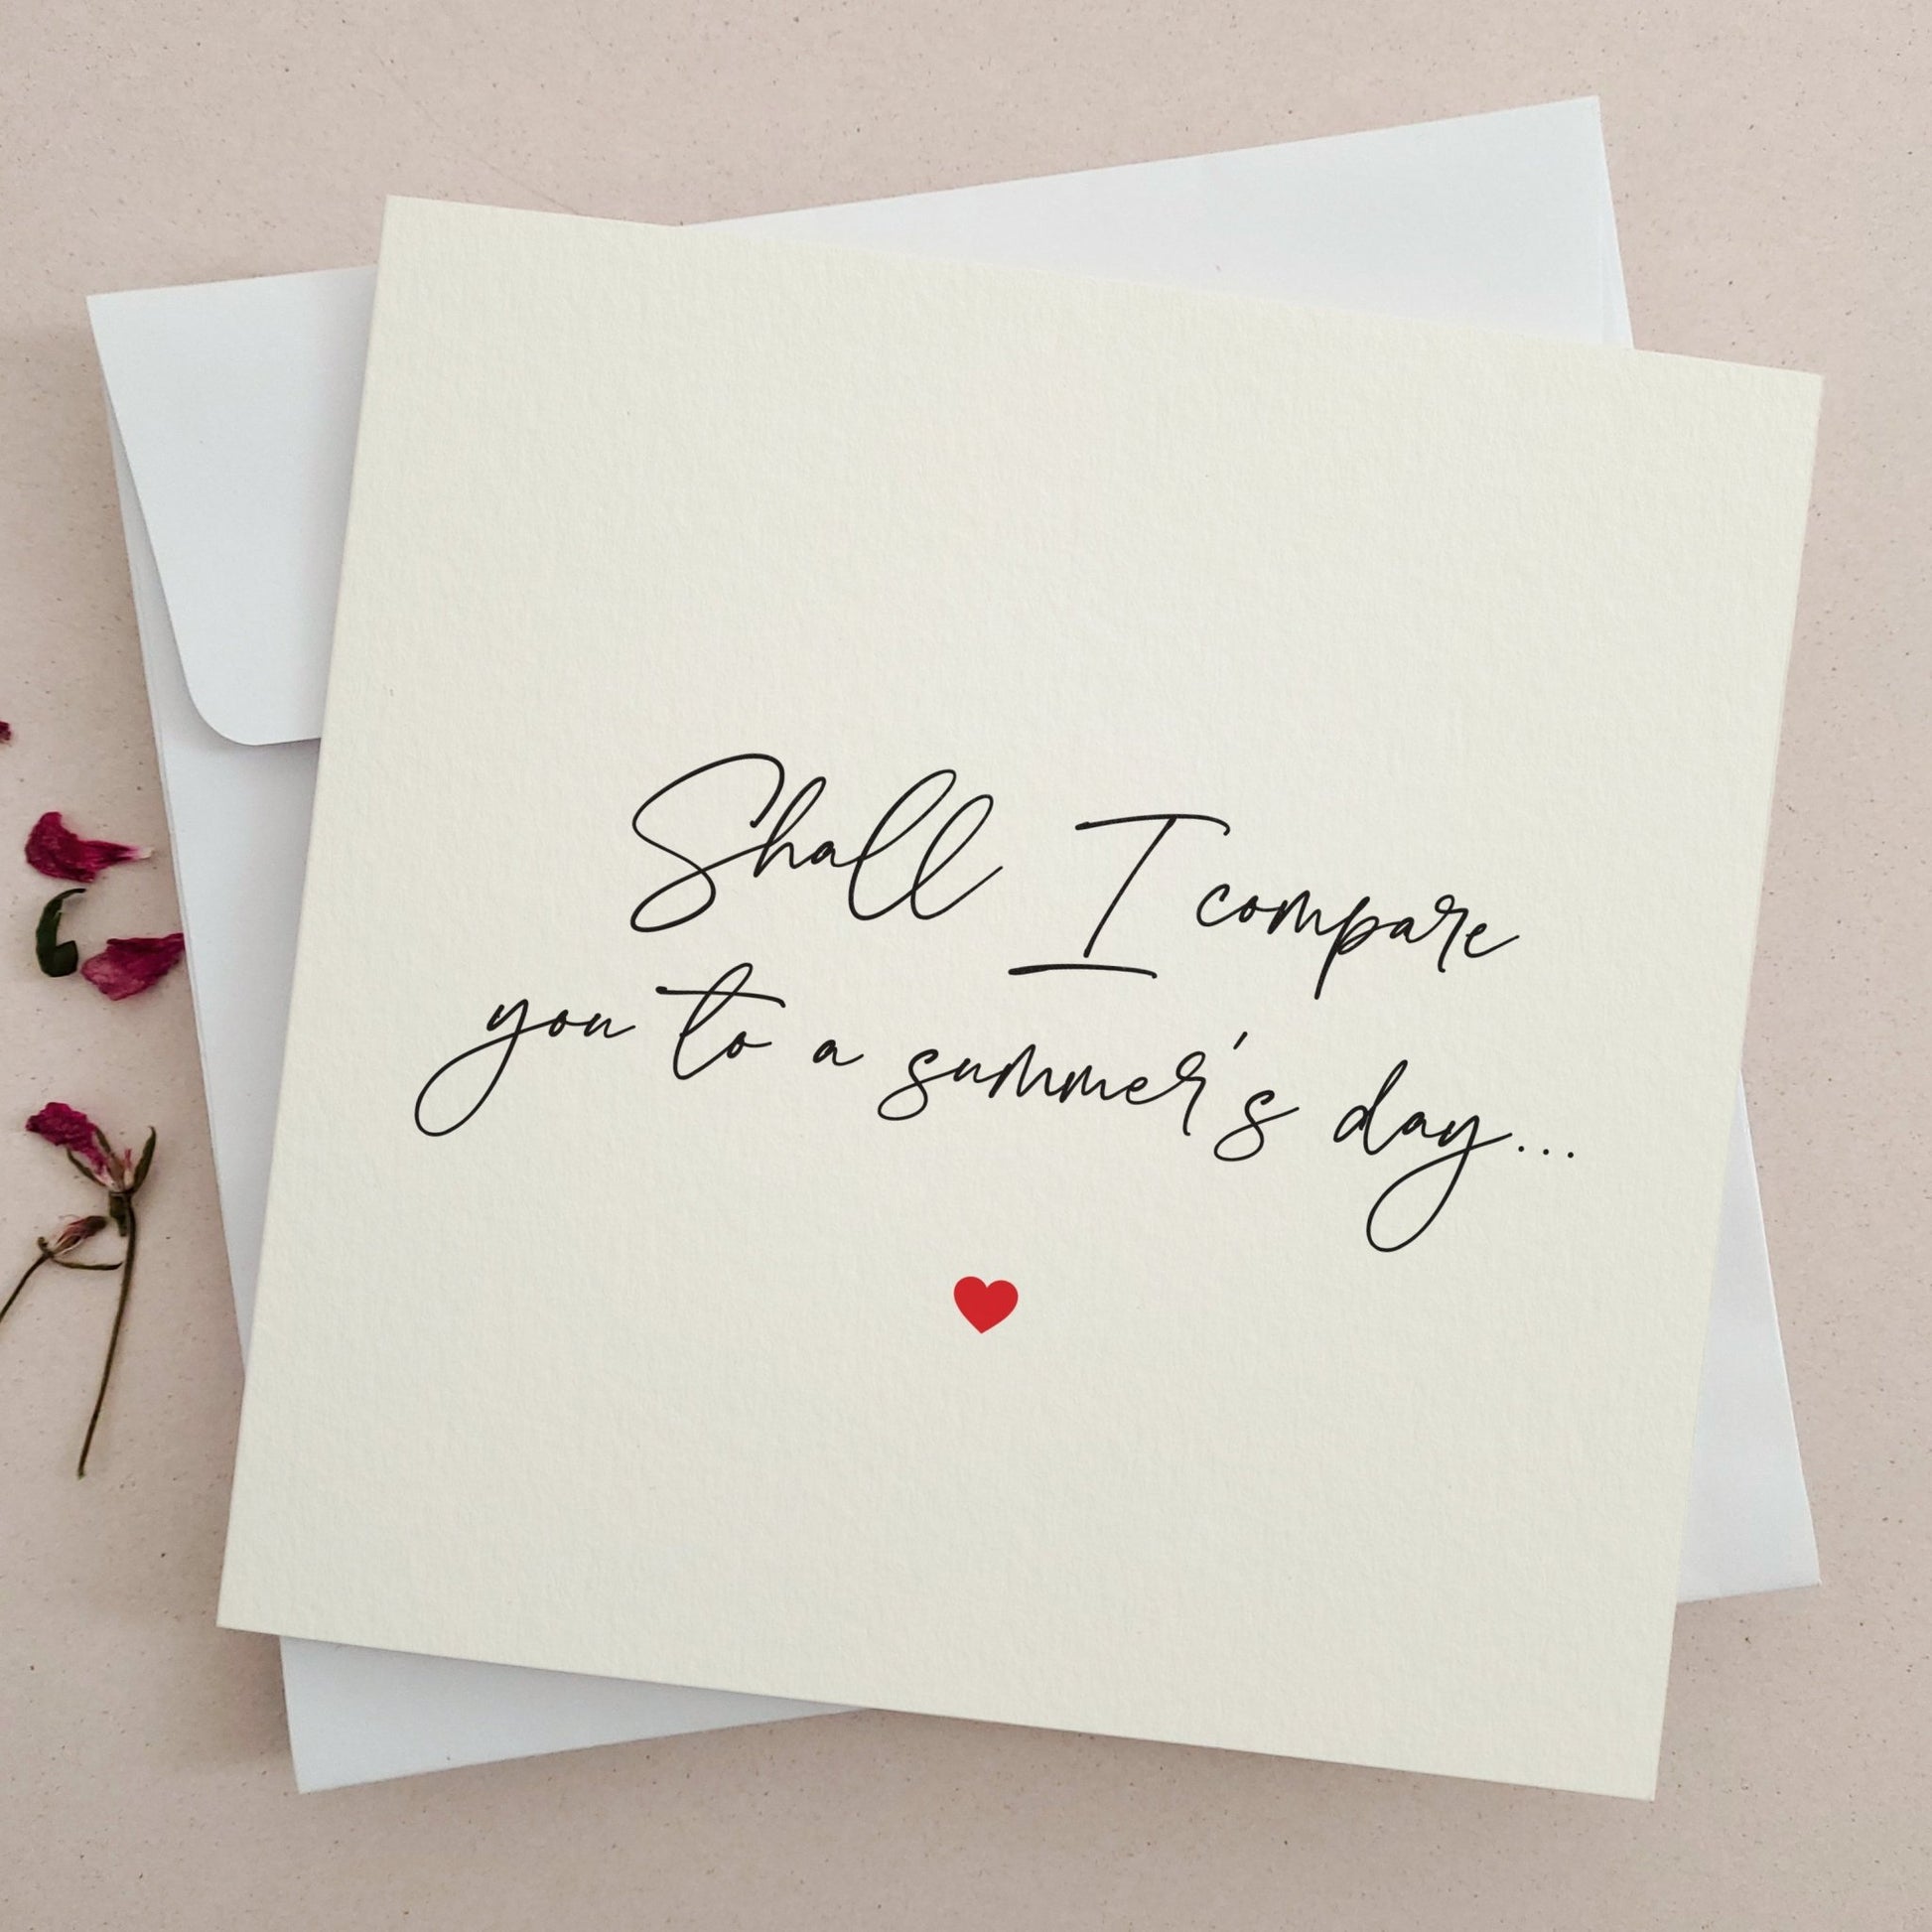 Shall I compare
you to a summer's day...